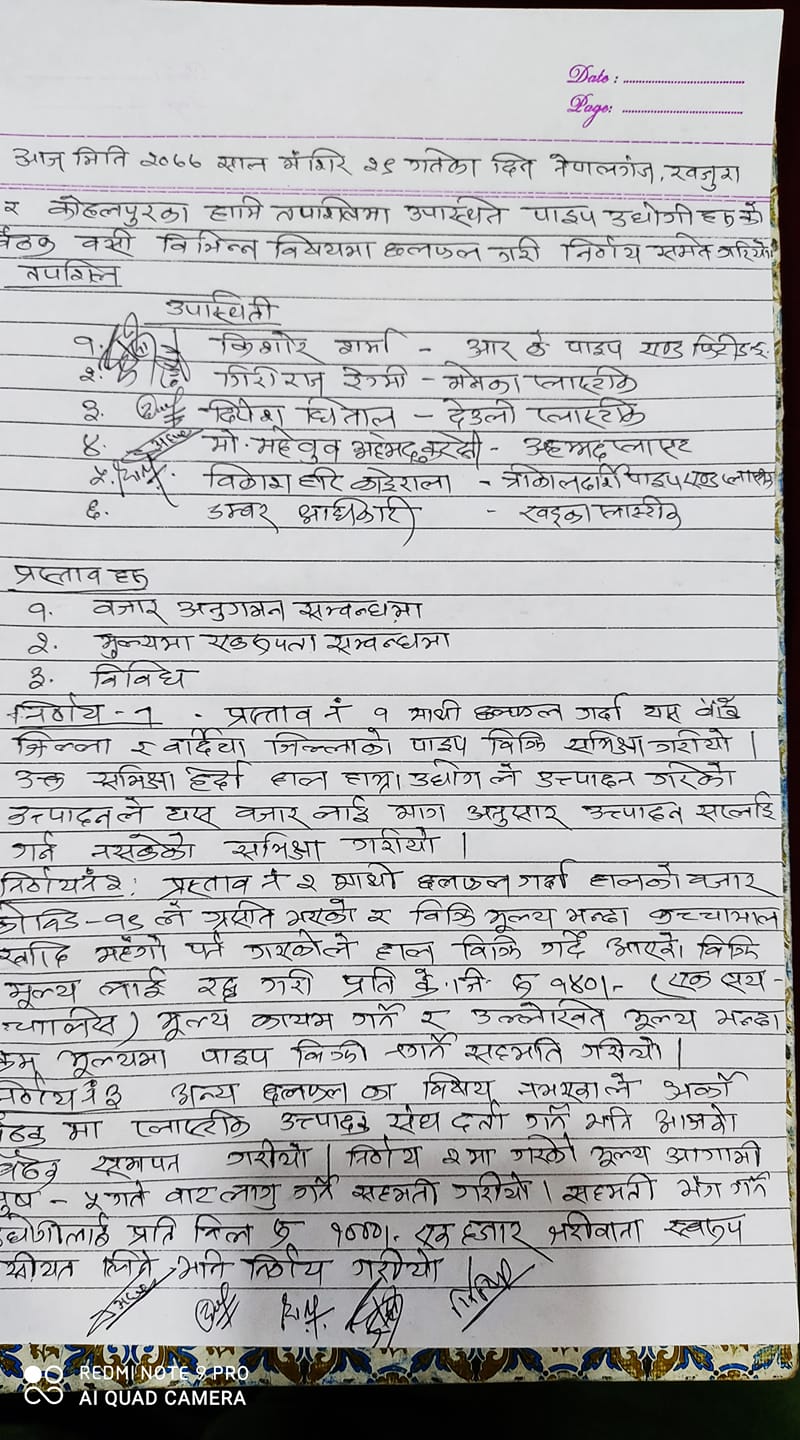 Date :
Page:
आज मिति २०७७ साल मंशिर २९ गतेका दिन नेपालगंज, खजुरा
र कोहलपुरका हामि तपाशिलमा उपास्थित पाइप उद्योगी हरू को
बैठक वसी विभिन्न विषयमा छलफल गरी निर्णय समेत गरियो
तपशिल
उपास्थिती
१. किशोर शर्मा - आर के पाइप एण्ड फिटीङ्ग
२. गिरीराज रेग्मी - मेनका प्लाष्टीक
३. दिपेश धिताल - देउली प्लाष्टीक
४. मो. महेवुव अहमद कुरेसी - अहमद प्लाष्ट
५. विकाश हरि कोइराला - त्रीकालदर्शि पाइप एण्ड प्लाष्टीक
६. डम्वर अधिकारी - खड्का प्लास्टीक
प्रस्ताव हरू
१. वजार अनुगमन सम्वन्धमा
२. मुल्यमा एकरूपता सम्वन्धमा
३. विविध
निर्णय - १ . प्रस्ताव नं १ माथी छलफल गर्दा यस बाँके
जिल्ला र वर्दिया जिल्लाको पाइप विक्रि समिक्षा गरीयो |
उक्त समिक्षा हेर्दा हाल हाम्रा उद्योग ले उत्पादन गरेको
उत्पादनले यस वजार लाई माग अनुसार उत्पादन सप्लाई
गर्न नसकेको समिक्षा गरीयो |
निर्णय नं २: प्रस्ताव नं २ माथी छलफल गर्दा हालको वजार
कोविड-१९ ले ग्रसित भएको र विक्रि मूल्य भन्दा कच्चामाल
खादि महँगो पर्न गएकोले हाल विक्रि गर्दै आएको विक्रि
मूल्य लाई रद्द गरी प्रति के.जि रू १४०/- (एक सय-
चालिस) मूल्य कायम गर्ने र उल्लेखित मूल्य भन्दा
कम मूल्यमा पाइप विक्री नगर्ने सहमति गरीयो |
निर्णय नं ३ अन्य छलफल का विषय नभएकाले अर्को
बैठक मा प्लाष्टीक उत्पादक संघ दर्ता गर्ने भनि आजको
बैठक समापन गरीयो | निर्णय २ मा गरेको मूल्य आगामी
पुष - ५ गते वाट लागु गर्ने सहमती गरीयो | सहमती भंग गर्ने
उद्योगीलाई प्रति किलो रू १०००/- एक हजार जरीवाना स्वरूप
असीयत लिने भनि निर्णय गरीयो
REDMI NOTE 9 PRO
AI QUAD CAMERA